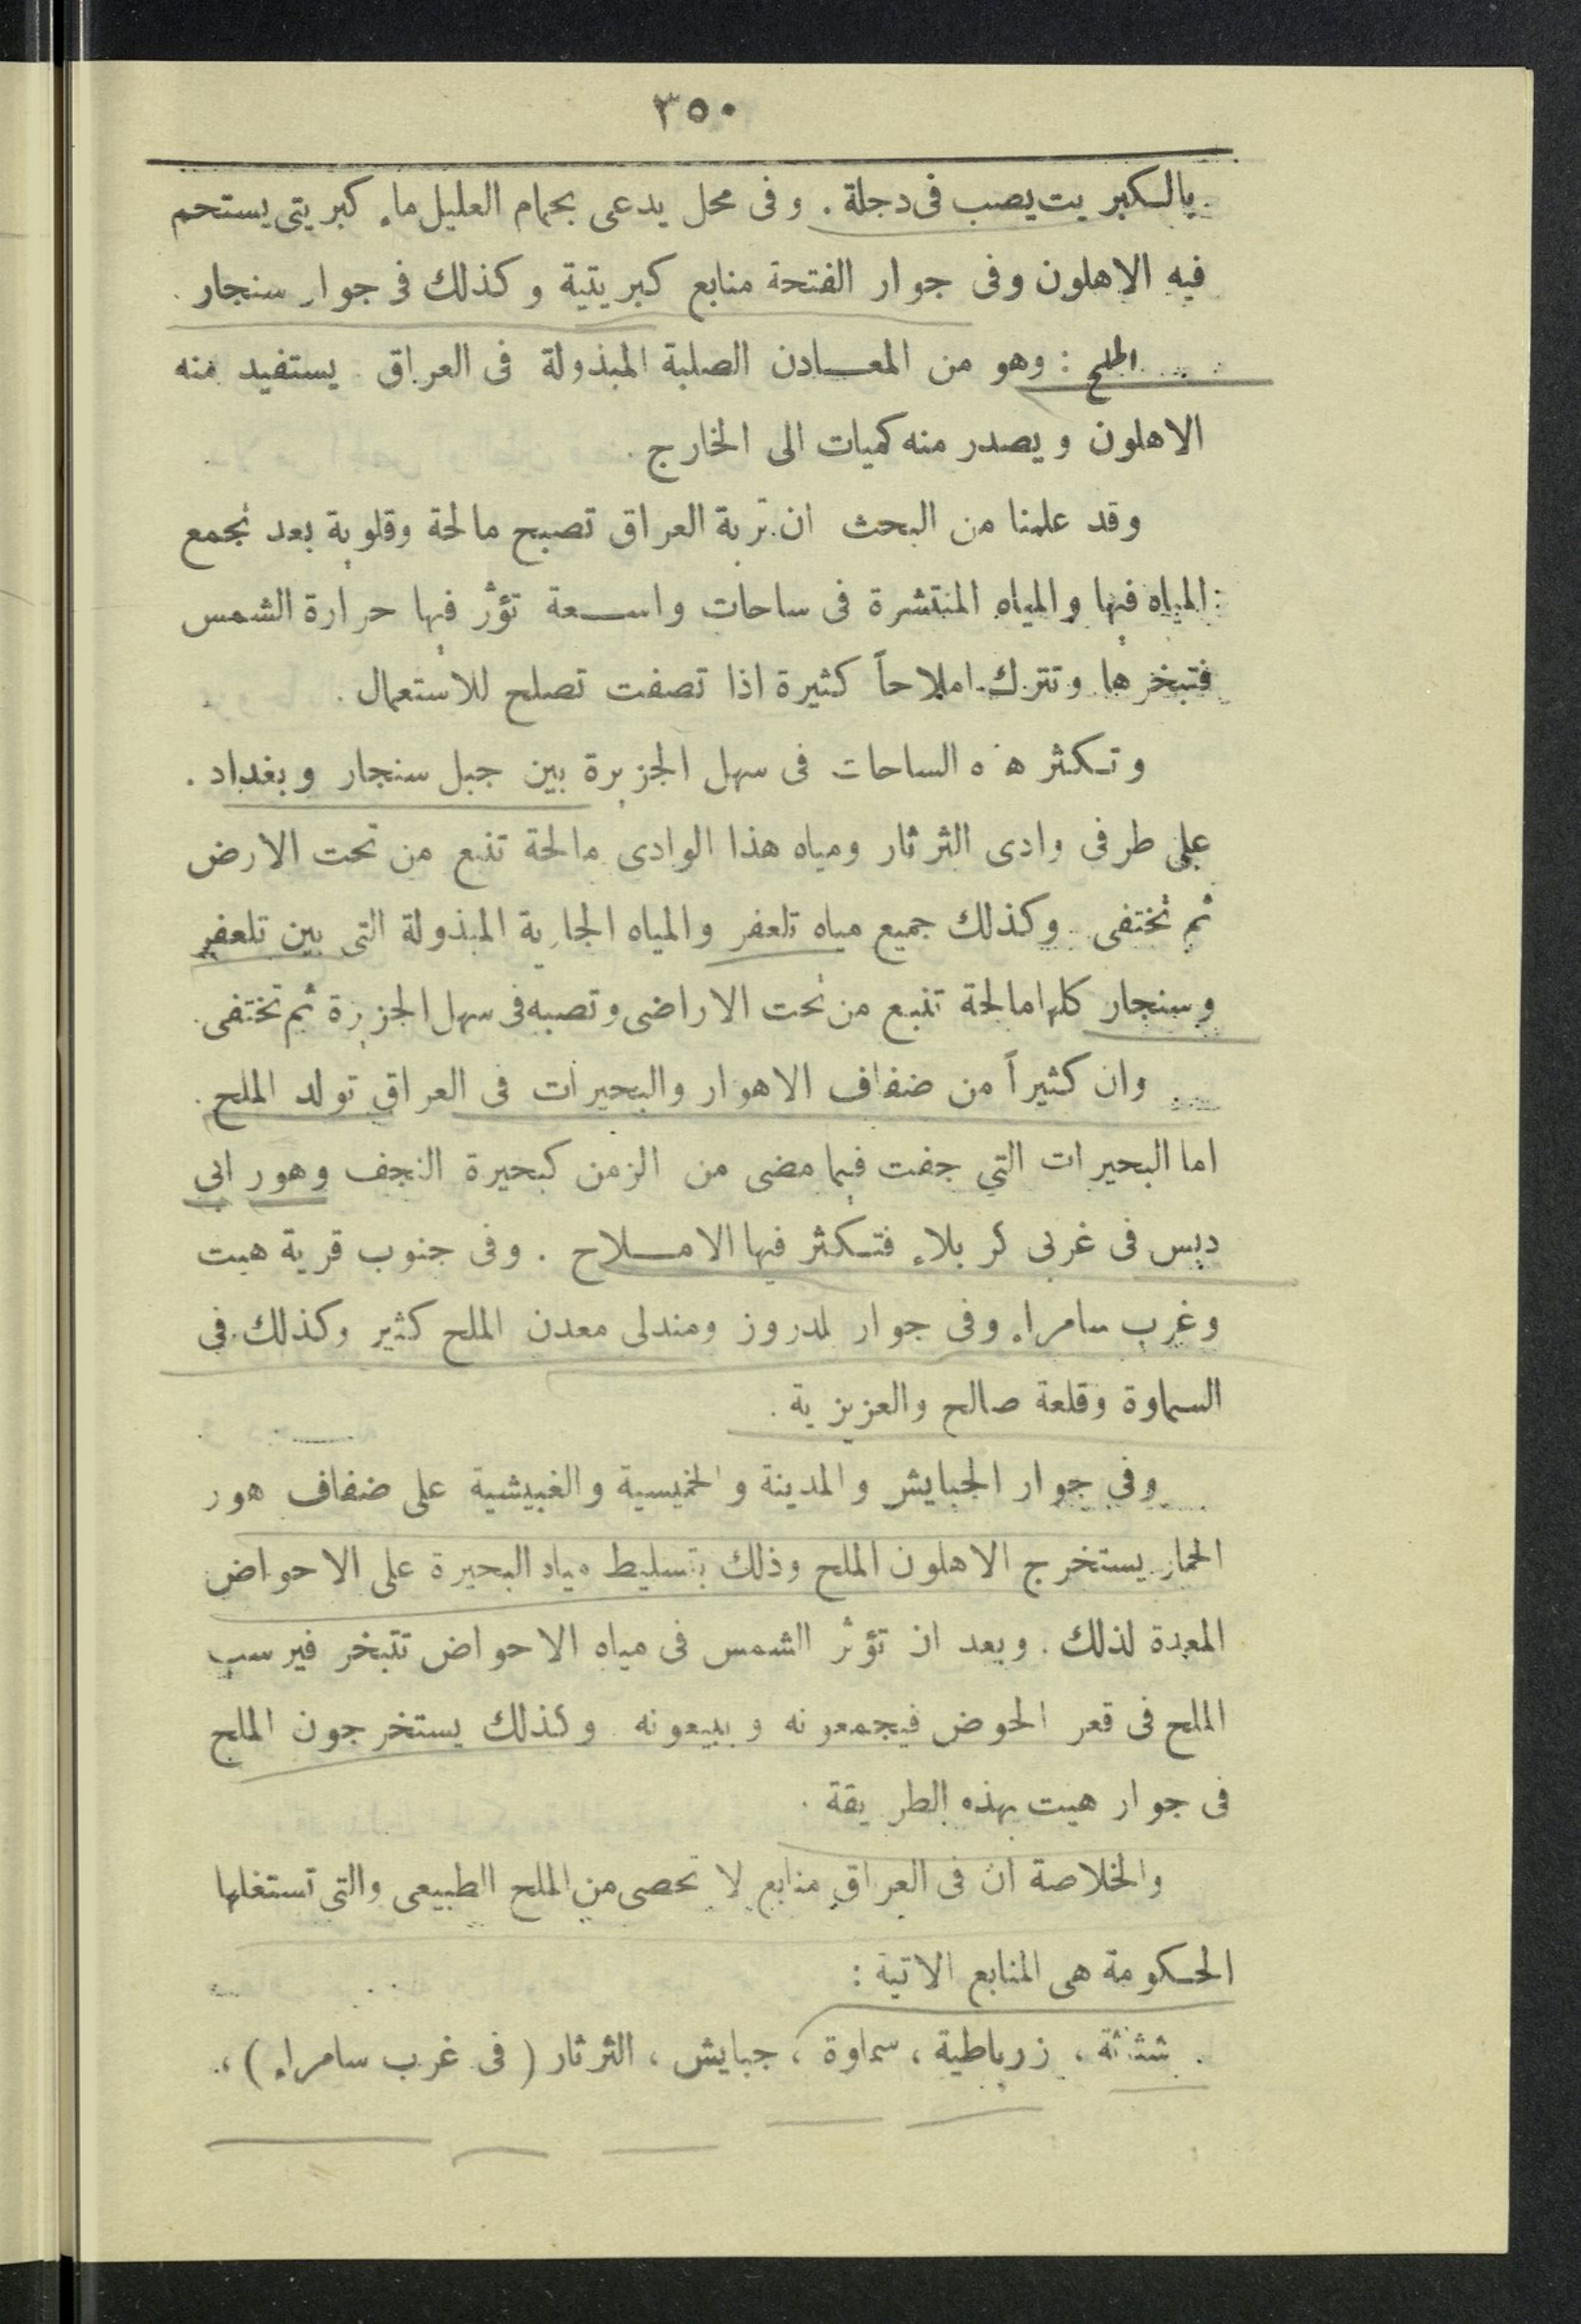 ٣٥٠
بالكبريت يصب فى دجلة . وفى محل يدعى بحمام العليل ماء كبريتى يستحم
فيه الاهلون وفى جوار الفتحة منابع كبريتية وكذلك فى جوار سنجار .
الملح : وهو من المعادن الصلبة المبذولة فى العراق . يستفيد منه
الاهلون ويصدر منه كميات الى الخارج .
وقد علمنا من البحث ان تربة العراق تصبح مالحة وقلوية بعد تجمع
المياه فيها والمياه المنتشرة فى ساحات واسعة تؤثر فيها حرارة الشمس
فتبخرها وتترك املاحاً كثيرة اذا تصفت تصلح للاستعمال .
وتكثر هذه الساحات فى سهل الجزيرة بين جبل سنجار وبغداد .
على طرفى وادى الثرثار ومياه هذا الوادى مالحة تنبع من تحت الارض
ثم تختفى . وكذلك جميع مياه تلعفر والمياه الجارية المبذولة التى بين تلعفر
وسنجار كلها مالحة تنبع من تحت الاراضى وتصبه فى سهل الجزيرة ثم تختفى .
وان كثيراً من ضفاف الاهوار والبحيرات فى العراق تولد الملح .
اما البحيرات التي جفت فيما مضى من الزمن كبحيرة النجف وهور ابى
دبس فى غربى كربلاء فتكثر فيها الاملاح . وفى جنوب قرية هيت
وغرب سامراء وفى جوار لمدروز ومندلى معدن الملح كثير وكذلك فى
السماوة وقلعة صالح والعزيزية .
وفى جوار الجبايش والمدينة والخميسية والغبيشية على ضفاف هور
الحمار يستخرج الاهلون الملح وذلك بتسليط مياه البحيرة على الاحواض
المعدة لذلك . وبعد ان تؤثر الشمس فى مياه الاحواض تتبخر فيرسب
الملح فى قعر الحوض فيجمعونه ويبيعونه . وكذلك يستخرجون الملح
فى جوار هيت بهذه الطريقة .
والخلاصة ان فى العراق منابع لا تحصى من الملح الطبيعى والتى تستغلها
الحكومة هى المنابع الاتية :
شثاثة ، زرباطية ، سماوة ، جبايش ، الثرثار ( فى غرب سامراء ) ،